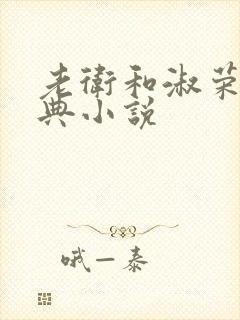 老衛和淑荣
典小説
哦一泰